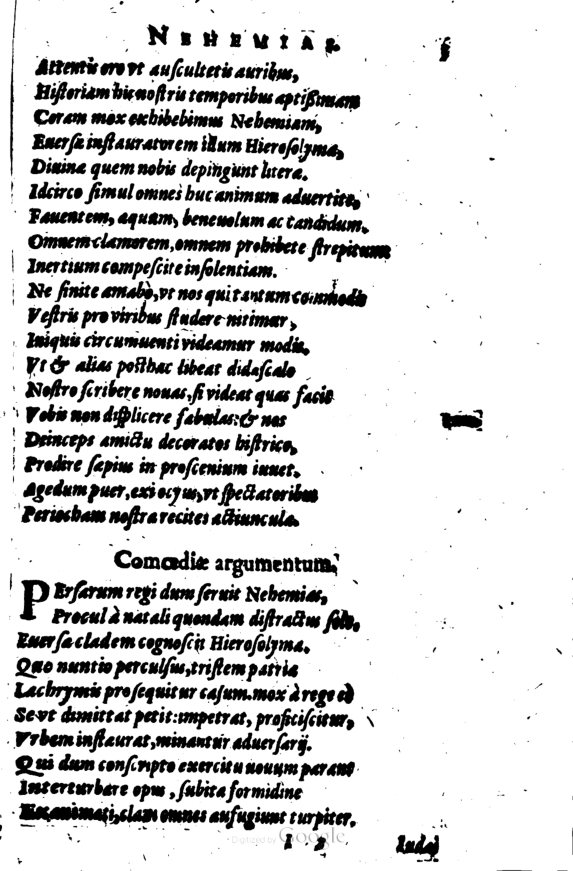 NEHEMIAS. 5
Attentis oro vt auſcultetis auribus,
Hiſtoriam hic noſtris temporibus aptißimam
Coram mox exhibebimus Nehemiam,
Euerſæ inſtauratorem illum Hieroſolymæ,
Diuinæ quem nobis depingunt literæ.
Idcirco ſimul omnes huc animum aduertite,
Fauentem, æquum, beneuolum ac candidum.
Omnem clamorem, omnem prohibete ſtrepitum
Inertium compeſcite inſolentiam.
Ne ſinite amabò, vt nos qui tantum commodis
Veſtris pro viribus ſtudere nitimur,
Iniquis circumuenti videamur modis.
Vt & aliàs poſthac libeat didaſcalo
Noſtro ſcribere nouas, ſi videat quas facit
Vobis non diſplicere fabulas: & nos
Deinceps amictu decoratos hiſtrico,
Prodire ſæpius in proſcenium iuuet.
Agedum puer, exi ocyus, vt ſpectatoribus
Periocham noſtra recites actiuncula.
Comœdiæ argumentum.
PErſarum regi dum ſeruit Nehemias,
Procul à natali quondam diſtractus ſolo,
Euerſæ cladem cognoſcit Hieroſolymæ.
Quo nuntio perculſus, triſtem patriæ
Lachrymis proſequitur caſum. mox à rege eò
Se vt dimittat petit: impetrat, proficiſcitur,
Vrbem inſtaurat, minantur aduerſarij.
Qui dum conſcripto exercitu nouum parant
Interturbare opus, ſubita formidine
Exanimati, clam omnes aufugiunt turpiter.
Digitized by Google
Iudæi